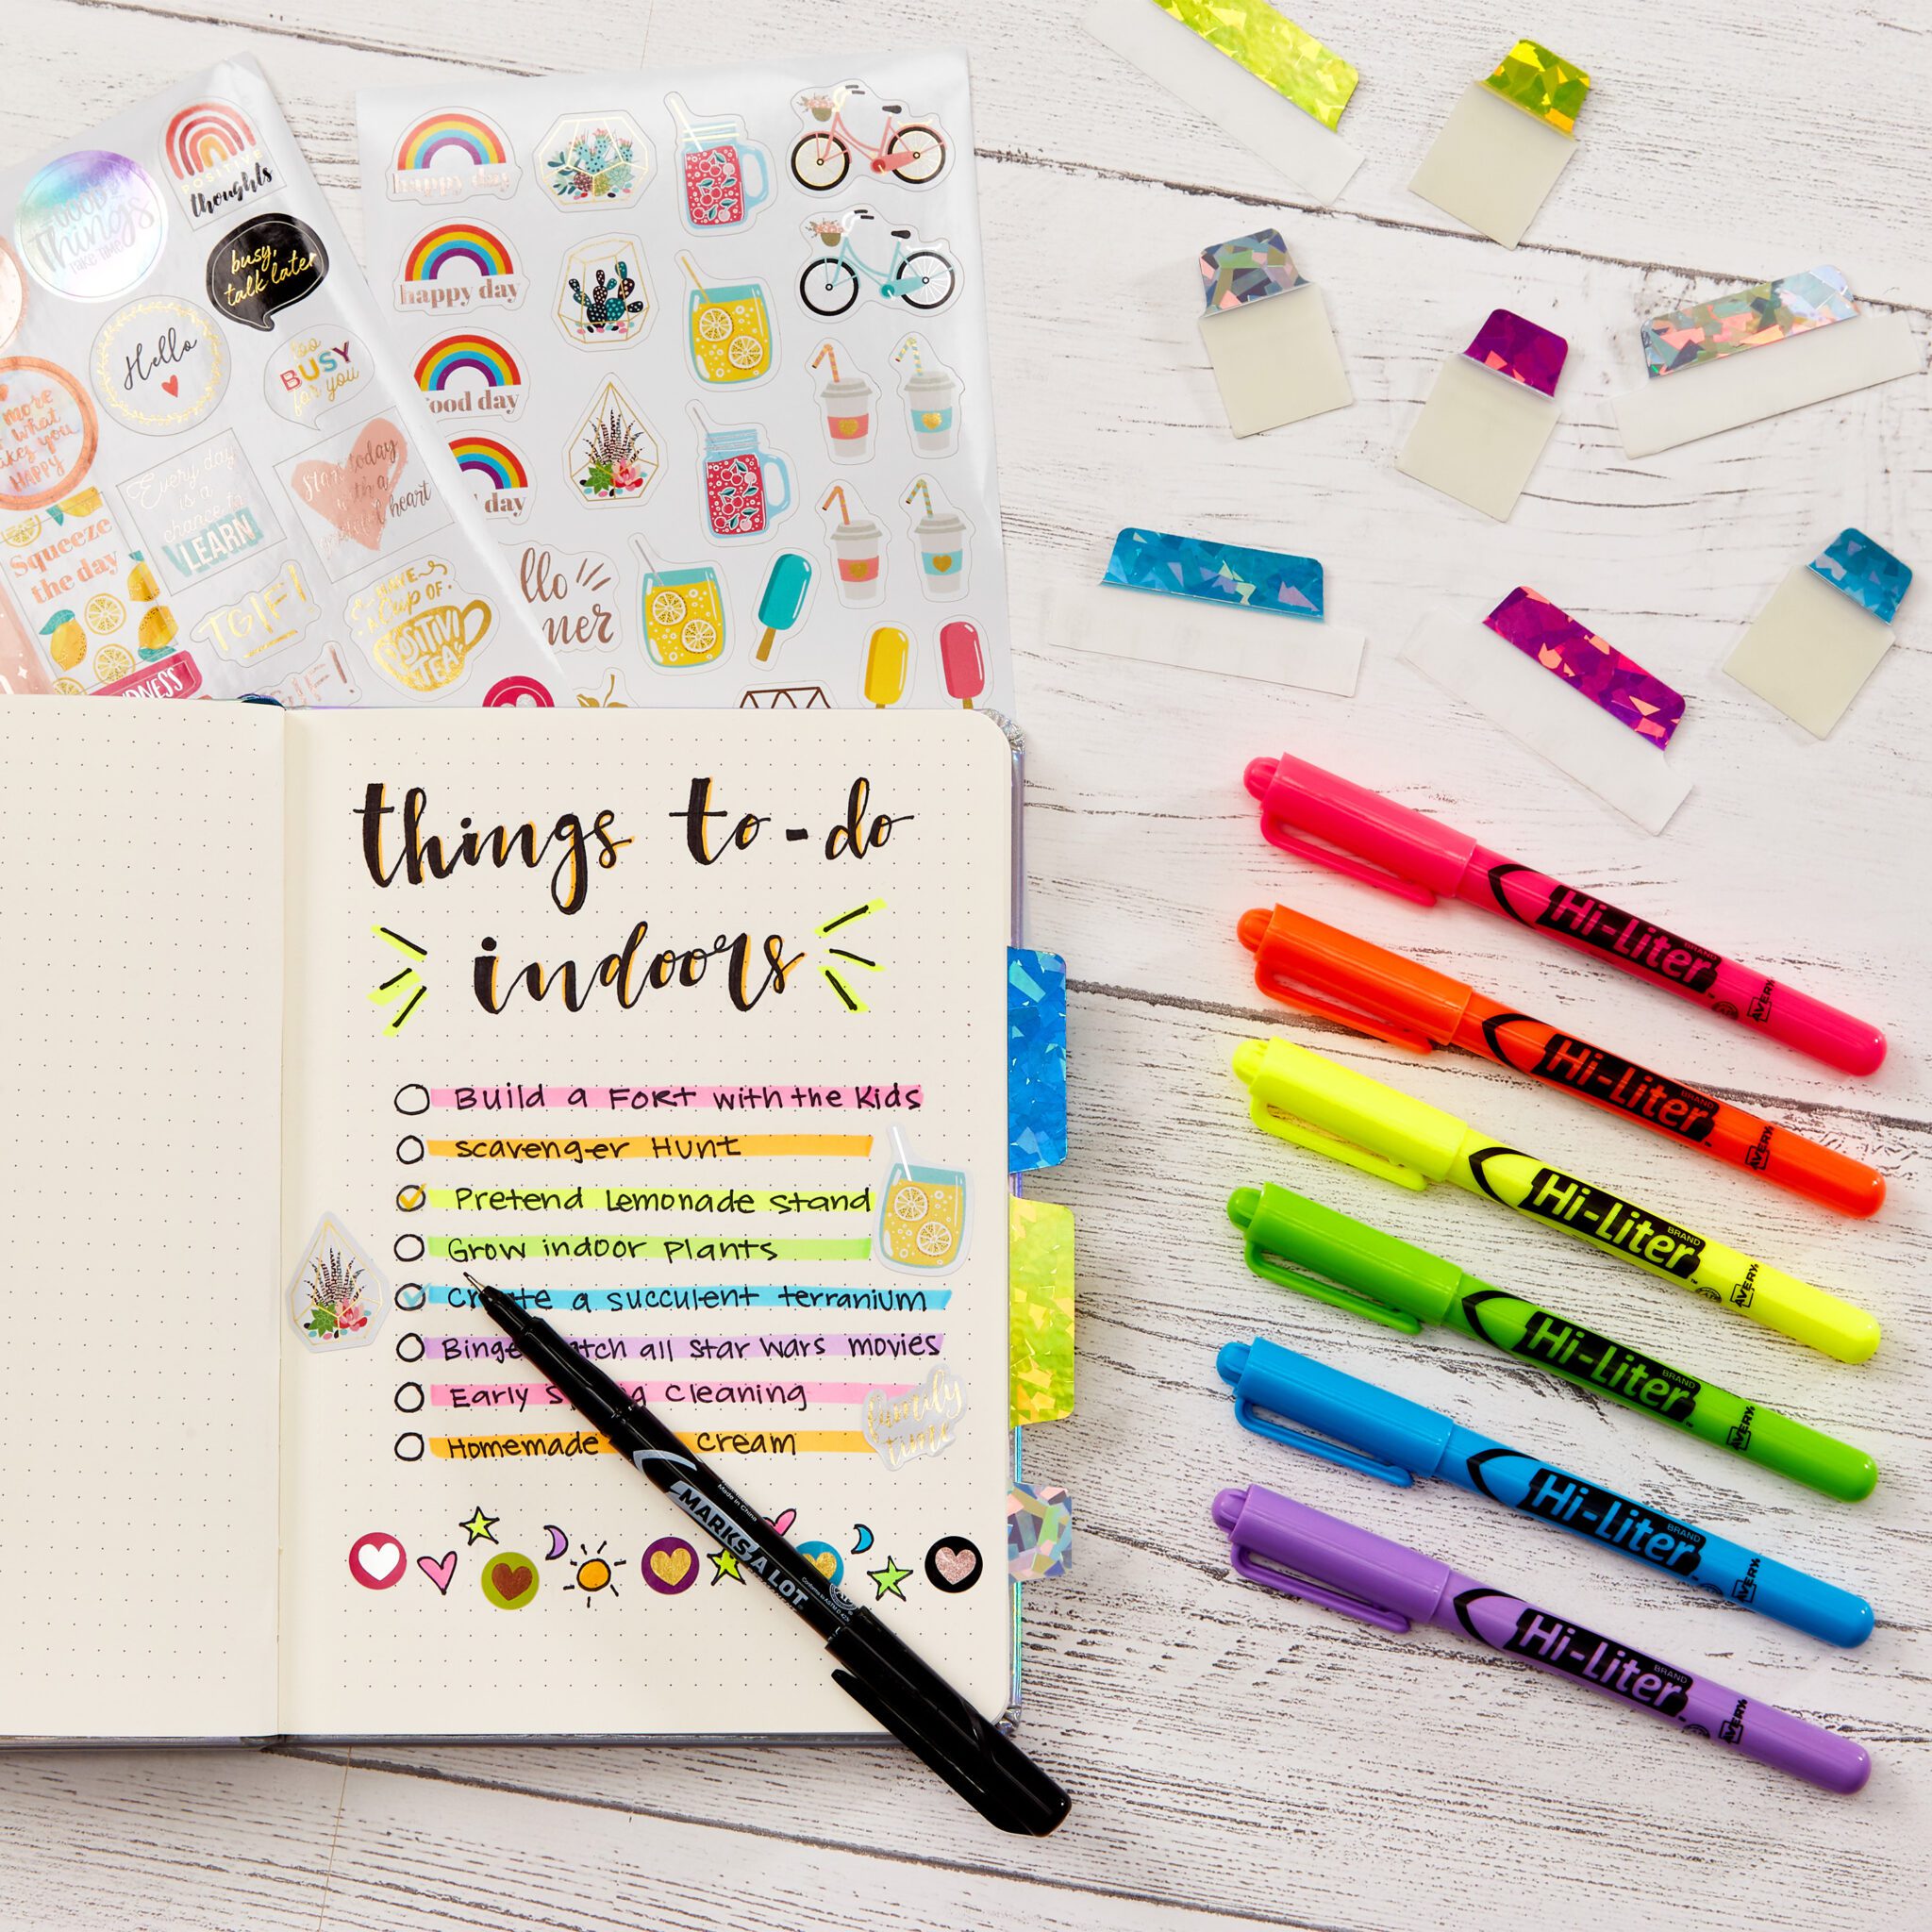 GOOD
Things
TAKE TIME
POSITIVE
thoughts
busy,
talk later
Hello
too
BUSY
for you
more
what
makes you
HAPPY
Every day
is a
chance to
LEARN
Start today
with a
grateful heart
Squeeze
the day
TGIF!
HAVE
a Cup OF
POSITIVI
TEA
happy day
happy day
good day
day
llo
mer
things to-do
indoors
Build a Fort with the Kids
Scavenger Hunt
Pretend Lemonade Stand
Grow indoor plants
Create a succulent terranium
Binge watch all Star Wars movies
Early Cleaning
Homemade Cream
family
time
MARKS A LOT
Made in China
Hi-Liter BRAND AVERY
Hi-Liter BRAND AVERY
Hi-Liter BRAND AVERY
Hi-Liter BRAND AVERY
Hi-Liter BRAND AVERY
Hi-Liter BRAND AVERY